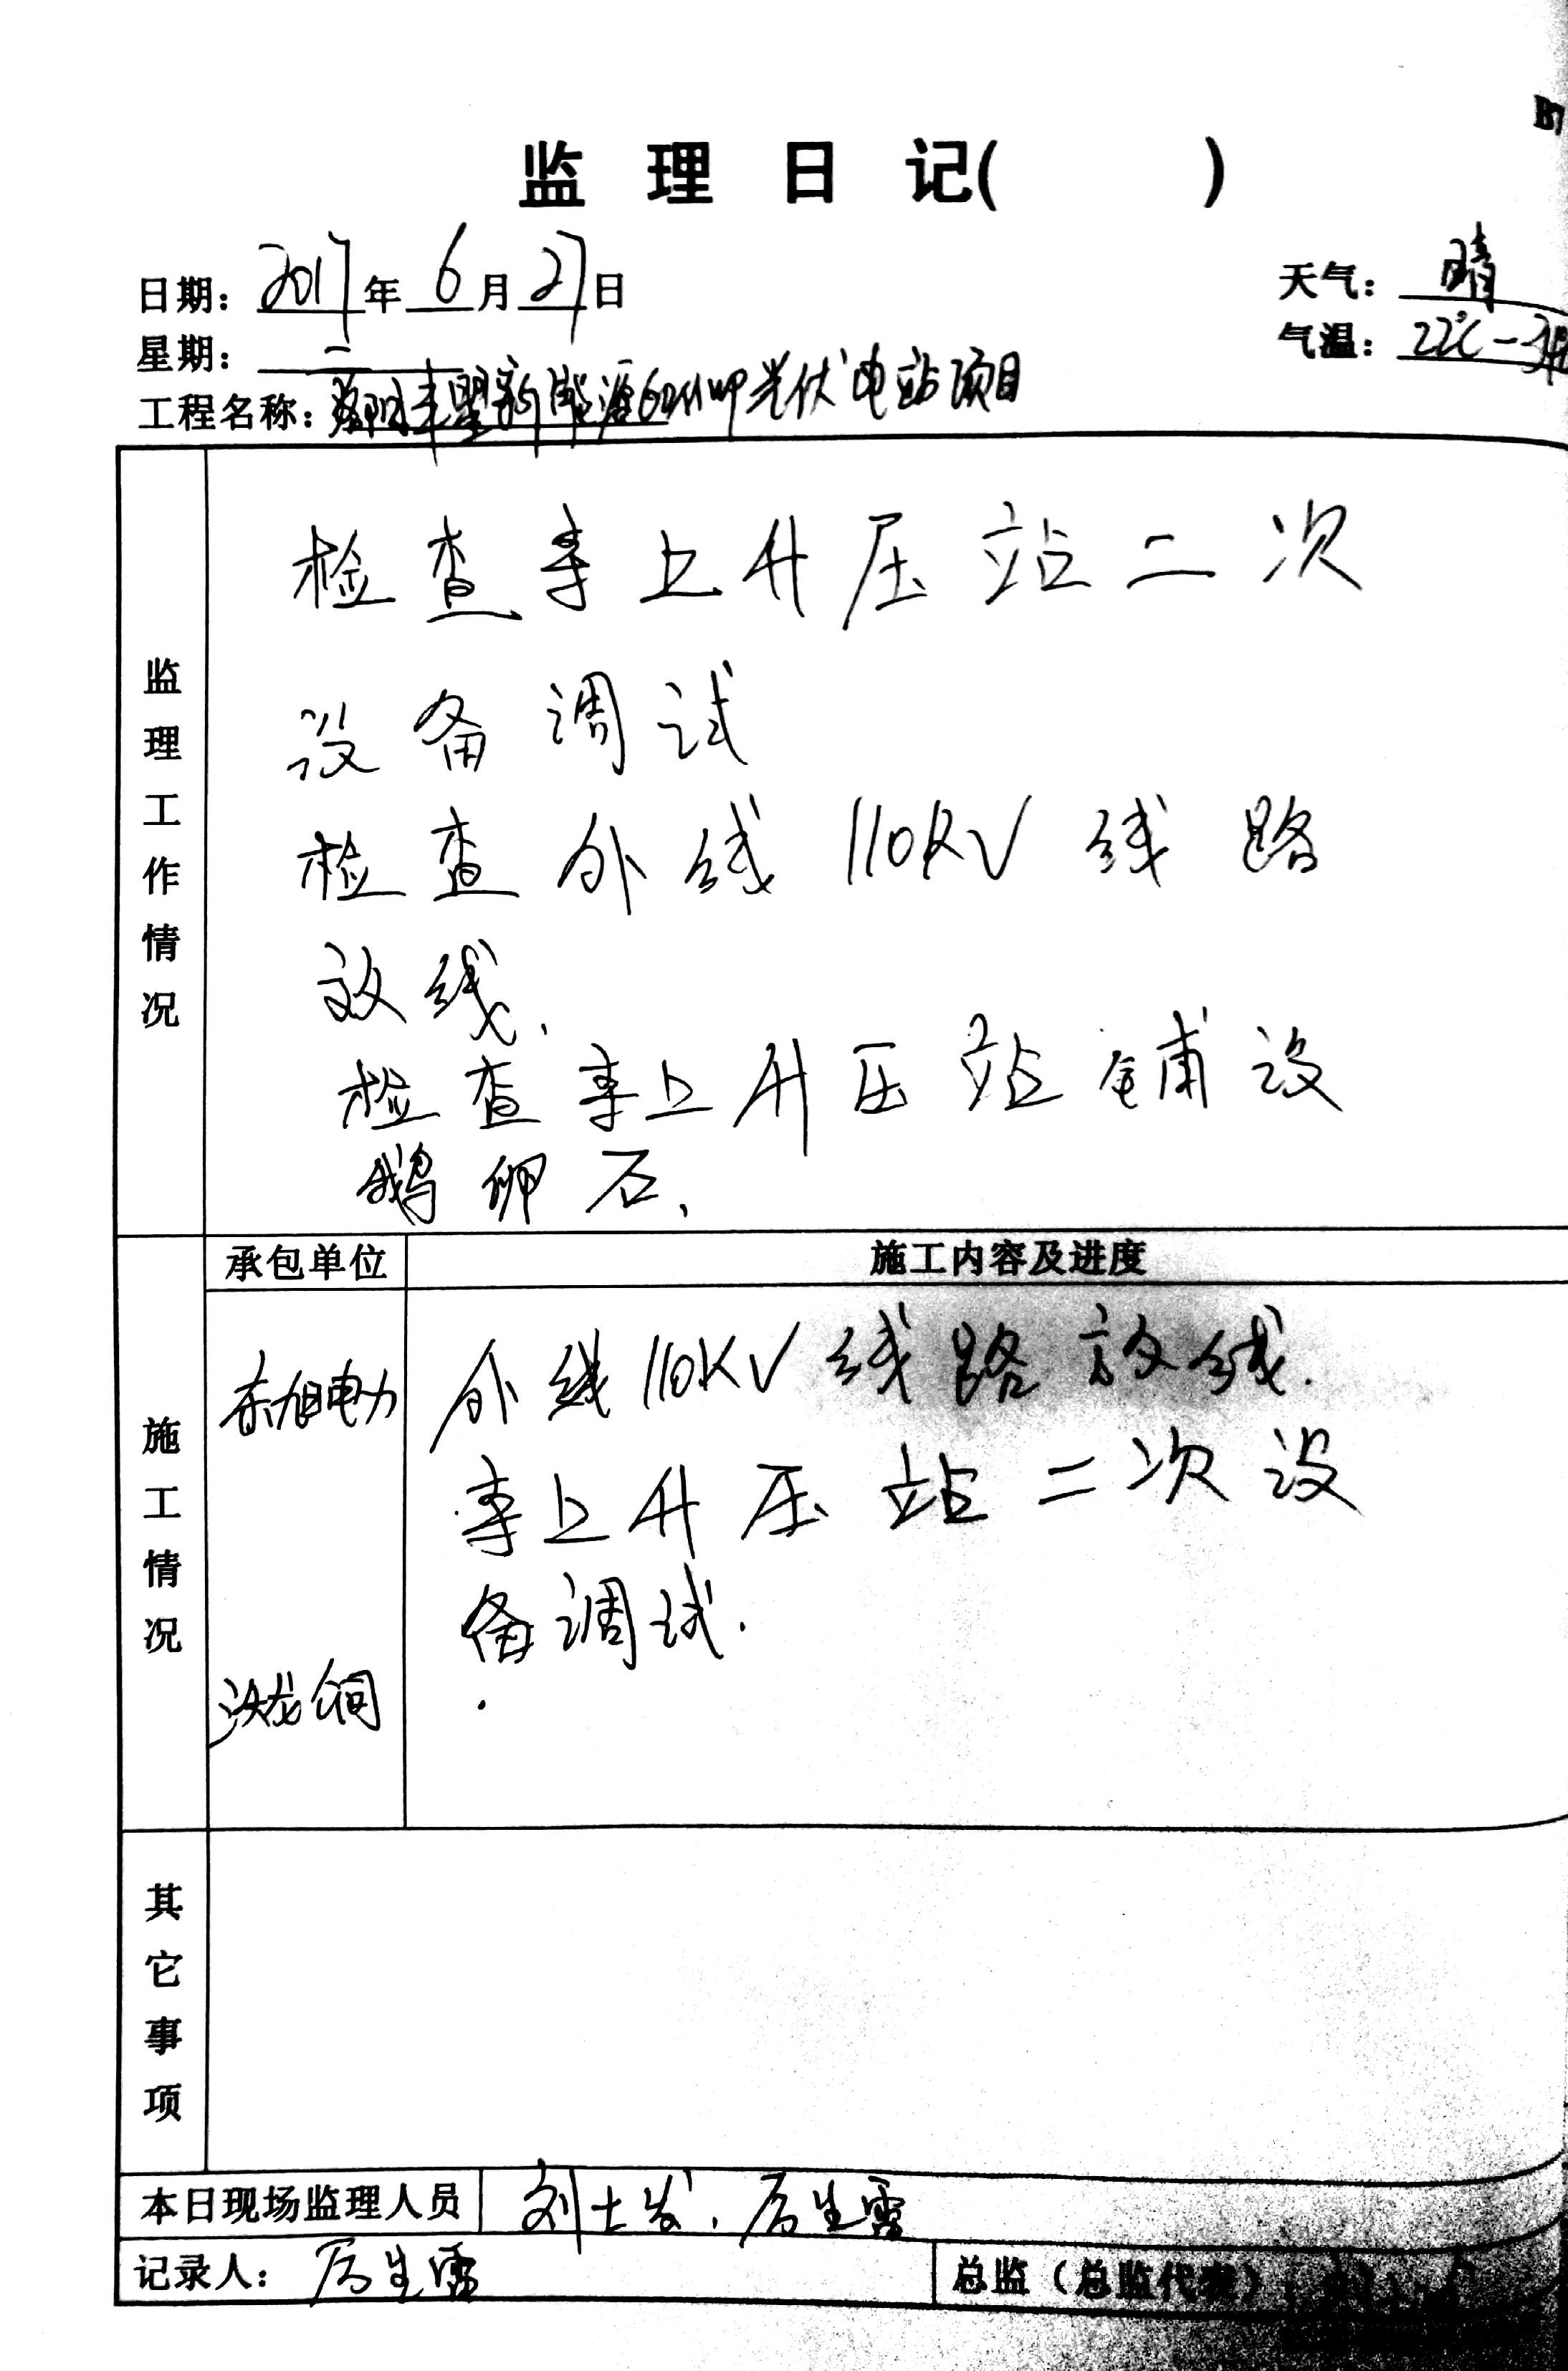 监理日记( )
日期: 2017年6月27日
天气: 晴
星期: 二
气温: 22℃-
工程名称: 新能源 光伏电站项目
监理工作情况
检查 上升压站二次
设备调试
检查外线110KV线路
放线、
检查 上升压站铺设
鹅卵石、
施工情况
承包单位
施工内容及进度
东旭电力
外线110KV线路放线.
上升压站二次设
备调试.
其它事项
本日现场监理人员
刘士发、厉生雷
记录人: 厉生雷
总监(总监代表):